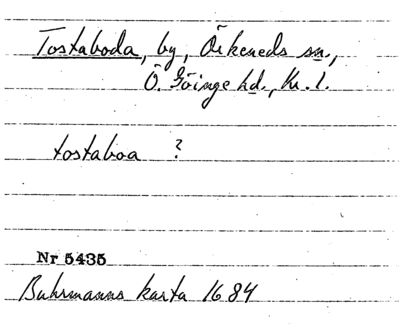 Tostaboda, by, Örkeneds sn.,
Ö. Göinge hd., Kr. l.
tostaboa ?
Nr 5435
Buhrmanns karta 1684